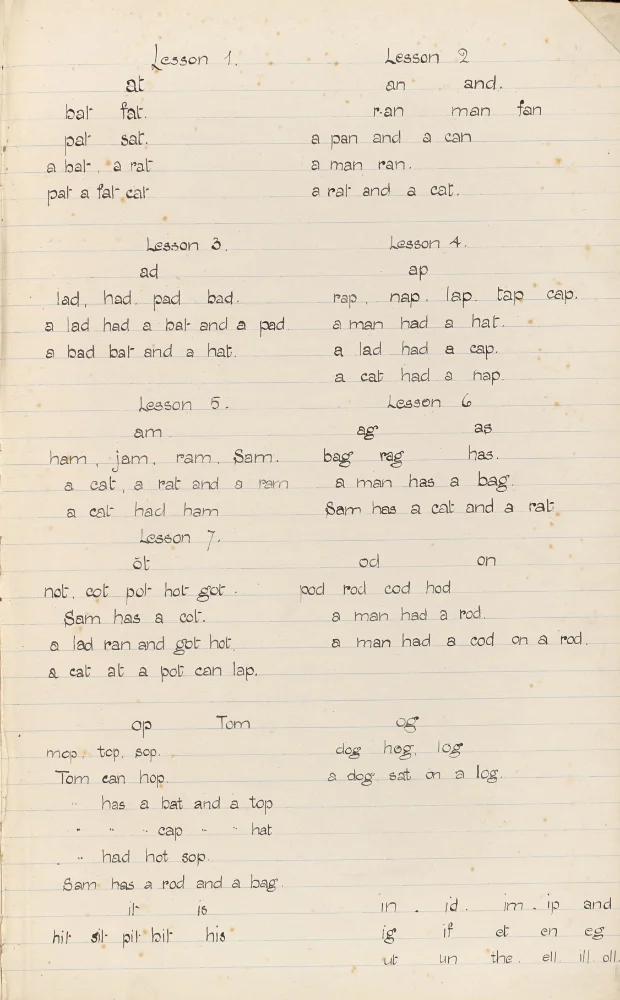 Lesson 1.
at
bat fat.
pat sat.
a bat, a rat
pat a fat cat
Lesson 2
an and.
ran man fan
a pan and a can
a man ran.
a rat and a cat.
Lesson 3.
ad
lad, had pad bad.
a lad had a bat and a pad
a bad bat and a hat.
Lesson 4.
ap
rap, nap. lap tap cap.
a man had a hat.
a lad had a cap.
a cat had a nap.
Lesson 5.
am
ham, jam, ram. Sam.
a cat, a rat and a ram
a cat had ham
Lesson 6
ag as
bag rag has.
a man has a bag.
Sam has a cat and a rat
Lesson 7.
ŏt
not, cot pot hot got.
Sam has a cot.
a lad ran and got hot.
a cat at a pot can lap.
od on
pod rod cod hod
a man had a rod.
a man had a cod on a rod.
op Tom
mop, top, sop.
Tom can hop.
" has a bat and a top
" " " cap " " hat
" had hot sop.
Sam has a rod and a bag.
og
dog hog, log
a dog sat on a log.
it is
hit sit pit bit his
in . id. im. ip and
ig if et en eg
ut un the. ell ill oll